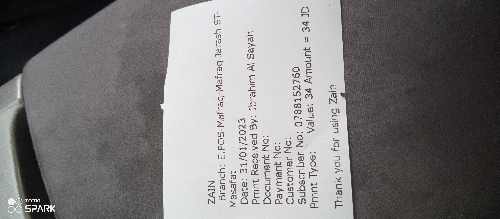 ZAIN
Branch: E.POS Mafraq, Mafraq Jarash ST-
Masafat
Date: 31/01/2023
Pmnt Received By: Ibrahim Al Sayah
Document No:
Payment No:
Customer No:
Subscriber No: 0788152760
Pmnt Type: Value: 34 Amount = 34 JD
Thank you for using Zain
SPARK